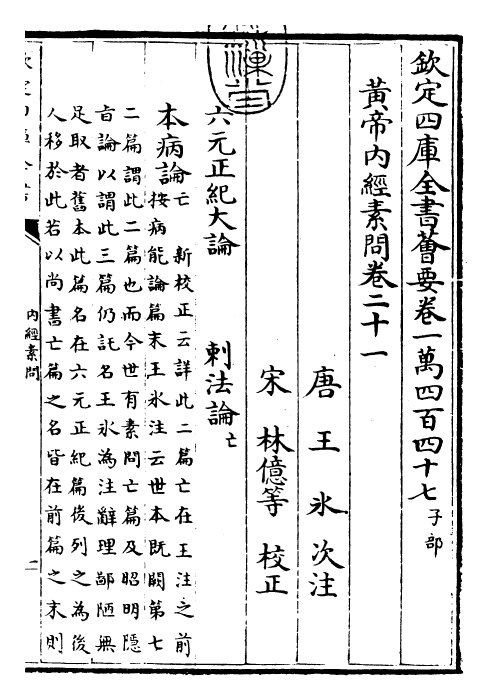 欽定四庫全書薈要卷一萬四百四十七子部
黃帝內經素問卷二十一
唐 王 氷 次注
宋 林億等 校正
六元正紀大論 刺法論亡
本病論亡 新校正云詳此二篇亡在王注之前
按病能論篇末王氷注云世本既闕第七
二篇謂此二篇也而今世有素問亡篇及昭明隱
旨論以謂此三篇仍託名王氷為注辭理鄙陋無
足取者舊本此篇名在六元正紀篇後列之為後
人移於此若以尚書亡篇之名皆在前篇之末則
內經素問